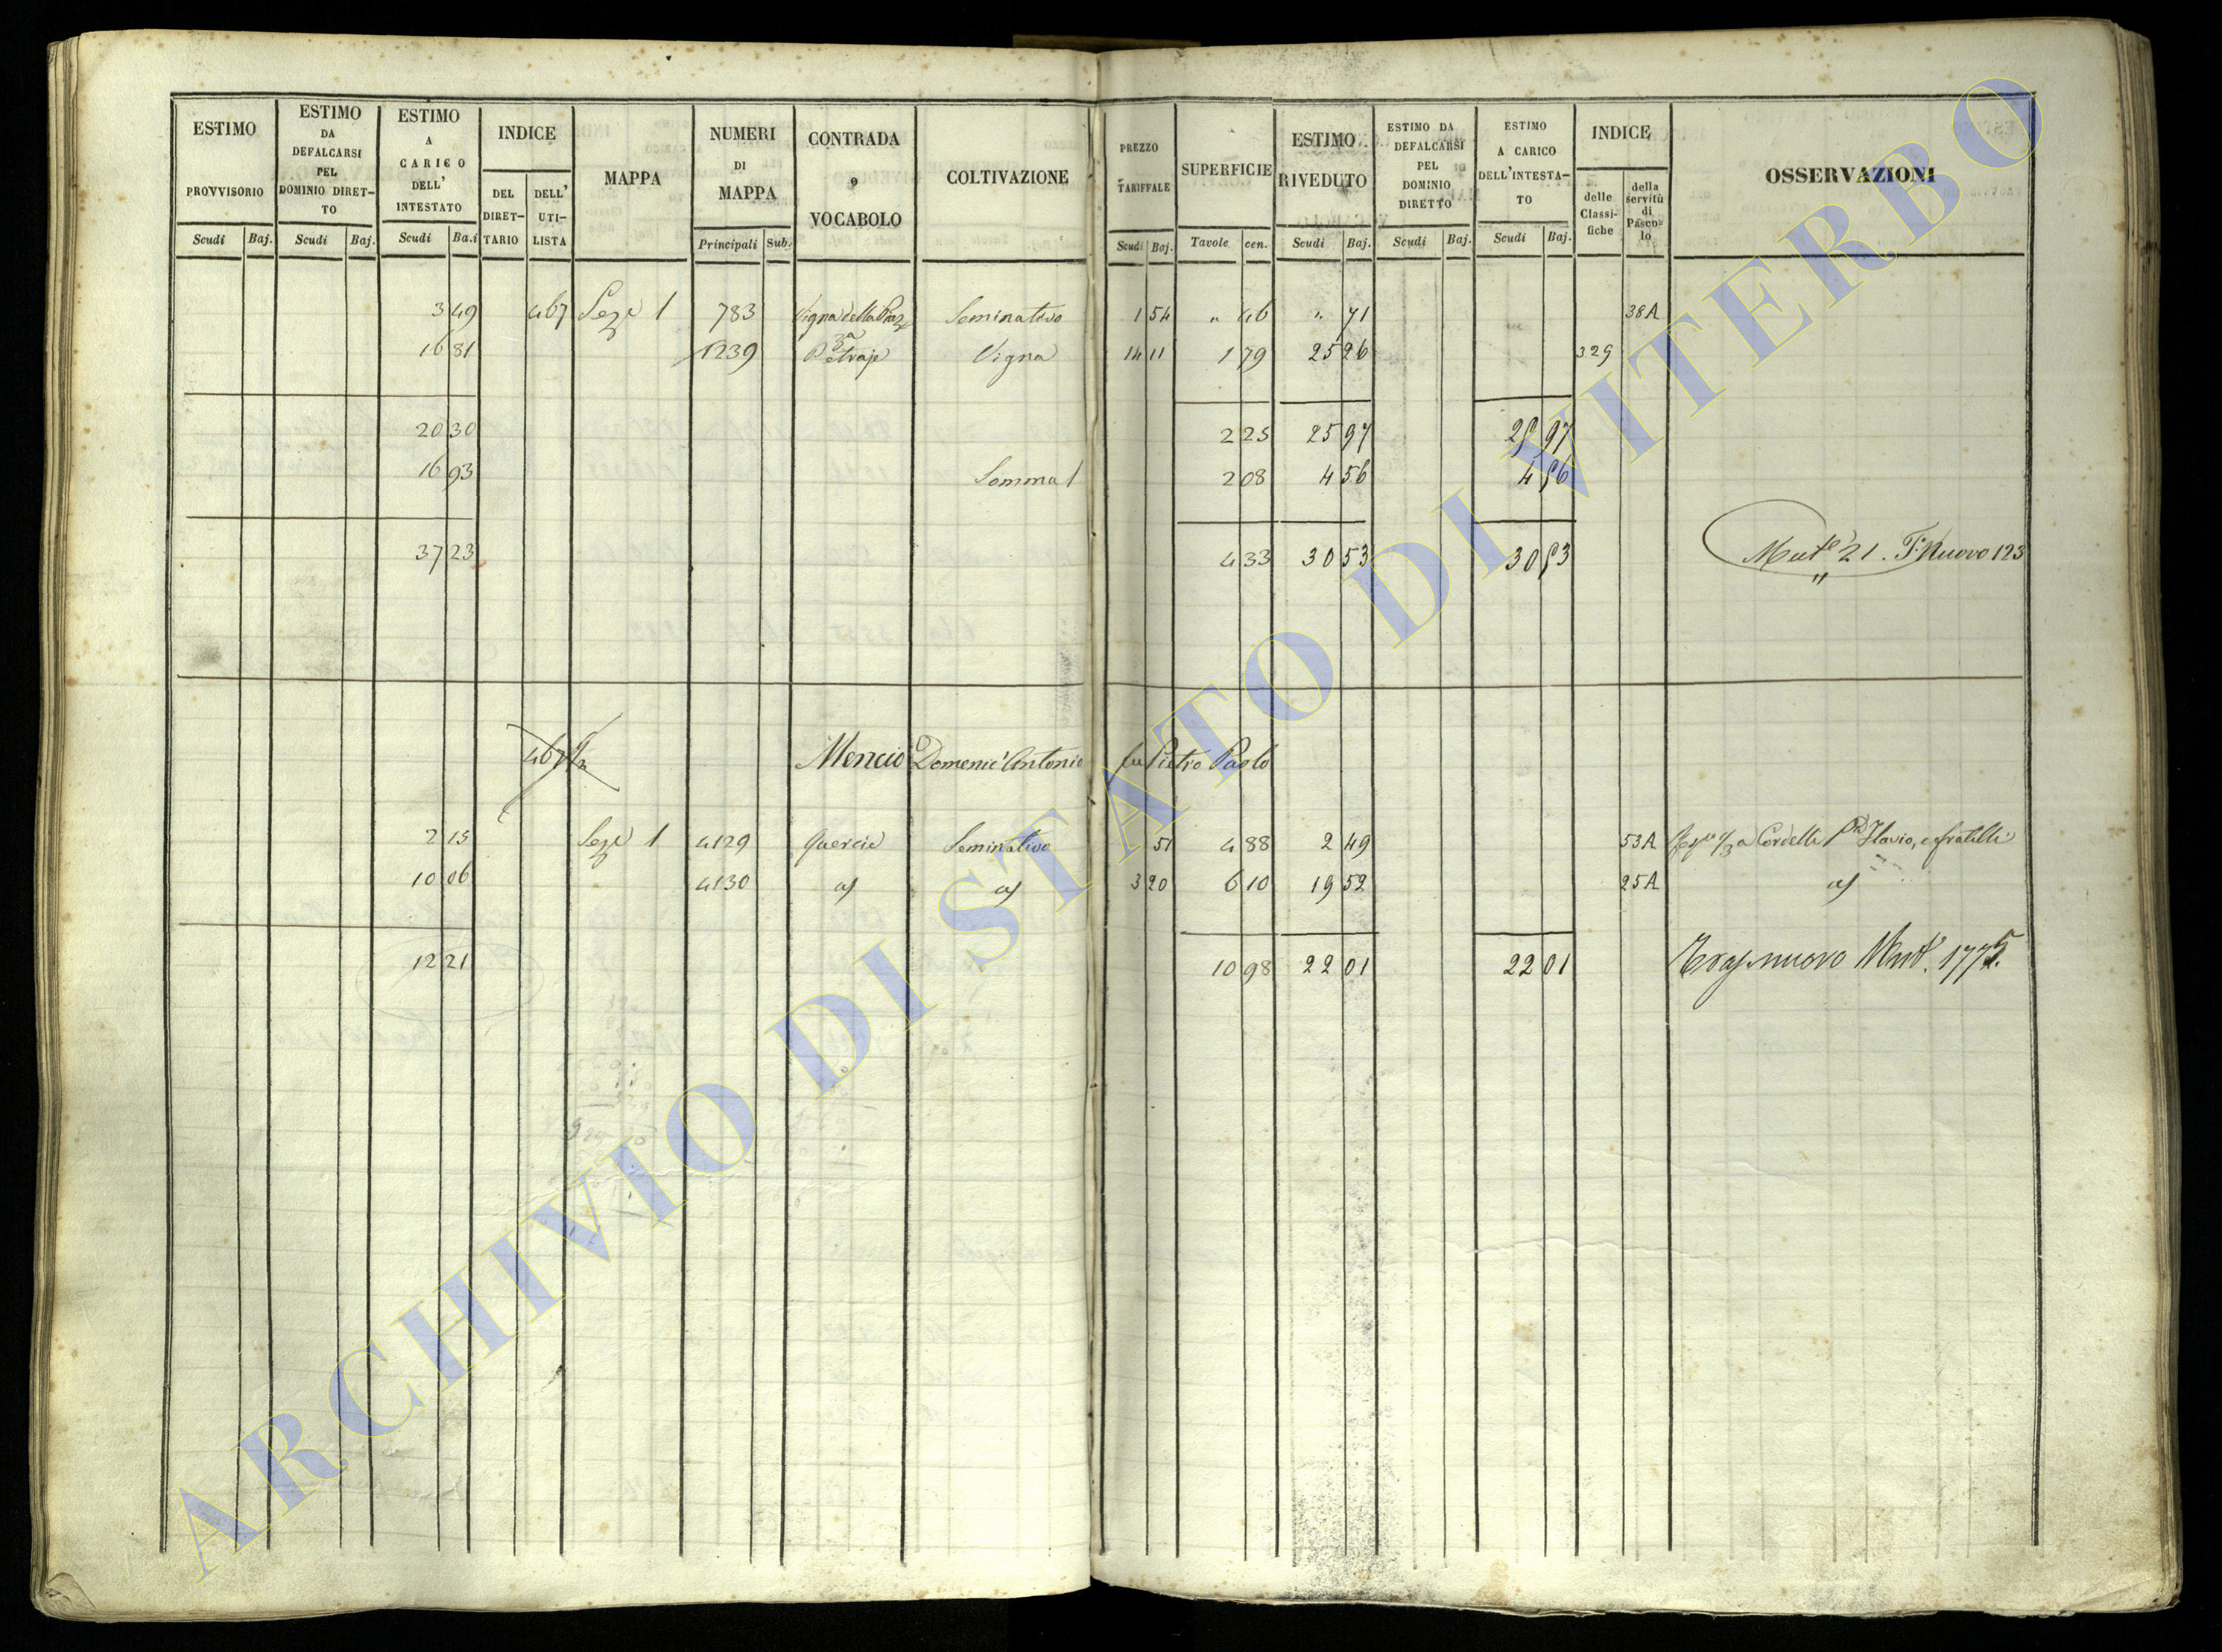 ESTIMO PROVVISORIO Scudi Baj.
ESTIMO DA DEFALCARSI PEL DOMINIO DIRET-TO Scudi Baj.
ESTIMO A CARICO DELL' INTESTATO Scudi Ba.i
INDICE DEL DIRET-TARIO DELL' UTI-LISTA
MAPPA
NUMERI DI MAPPA Principali Sub.
CONTRADA o VOCABOLO
COLTIVAZIONE
PREZZO TARIFFALE Scudi Baj.
SUPERFICIE Tavole cen.
ESTIMO RIVEDUTO Scudi Baj.
ESTIMO DA DEFALCARSI PEL DOMINIO DIRETTO Scudi Baj.
ESTIMO A CARICO DELL'INTESTA-TO Scudi Baj.
INDICE delle Classi-fiche della servitù di Pasco-lo
OSSERVAZIONI
3 49 467 Seze 1 783 Vigna della Seminativo 1 54 " 46 " 71 38A
16 81 1239 Vigna 14 11 1 79 25 26 329
20 30 2 25 25 97 25 97
16 93 Somma 1 2 08 4 56 4 56
37 23 4 33 30 53 30 53 Mute 21. T. Nuovo 123
Mencio Domenic'Antonio fu Pietro Paolo
2 15 Seze 1 4129 Quercie Seminativo 51 4 88 2 49 53A a Cordelli Flavio, e fratelli
10 06 4130 3 20 6 10 19 52 25A
12 21 10 98 22 01 22 01 nuovo Mut. 1775.
ARCHIVIO DI STATO DI VITERBO